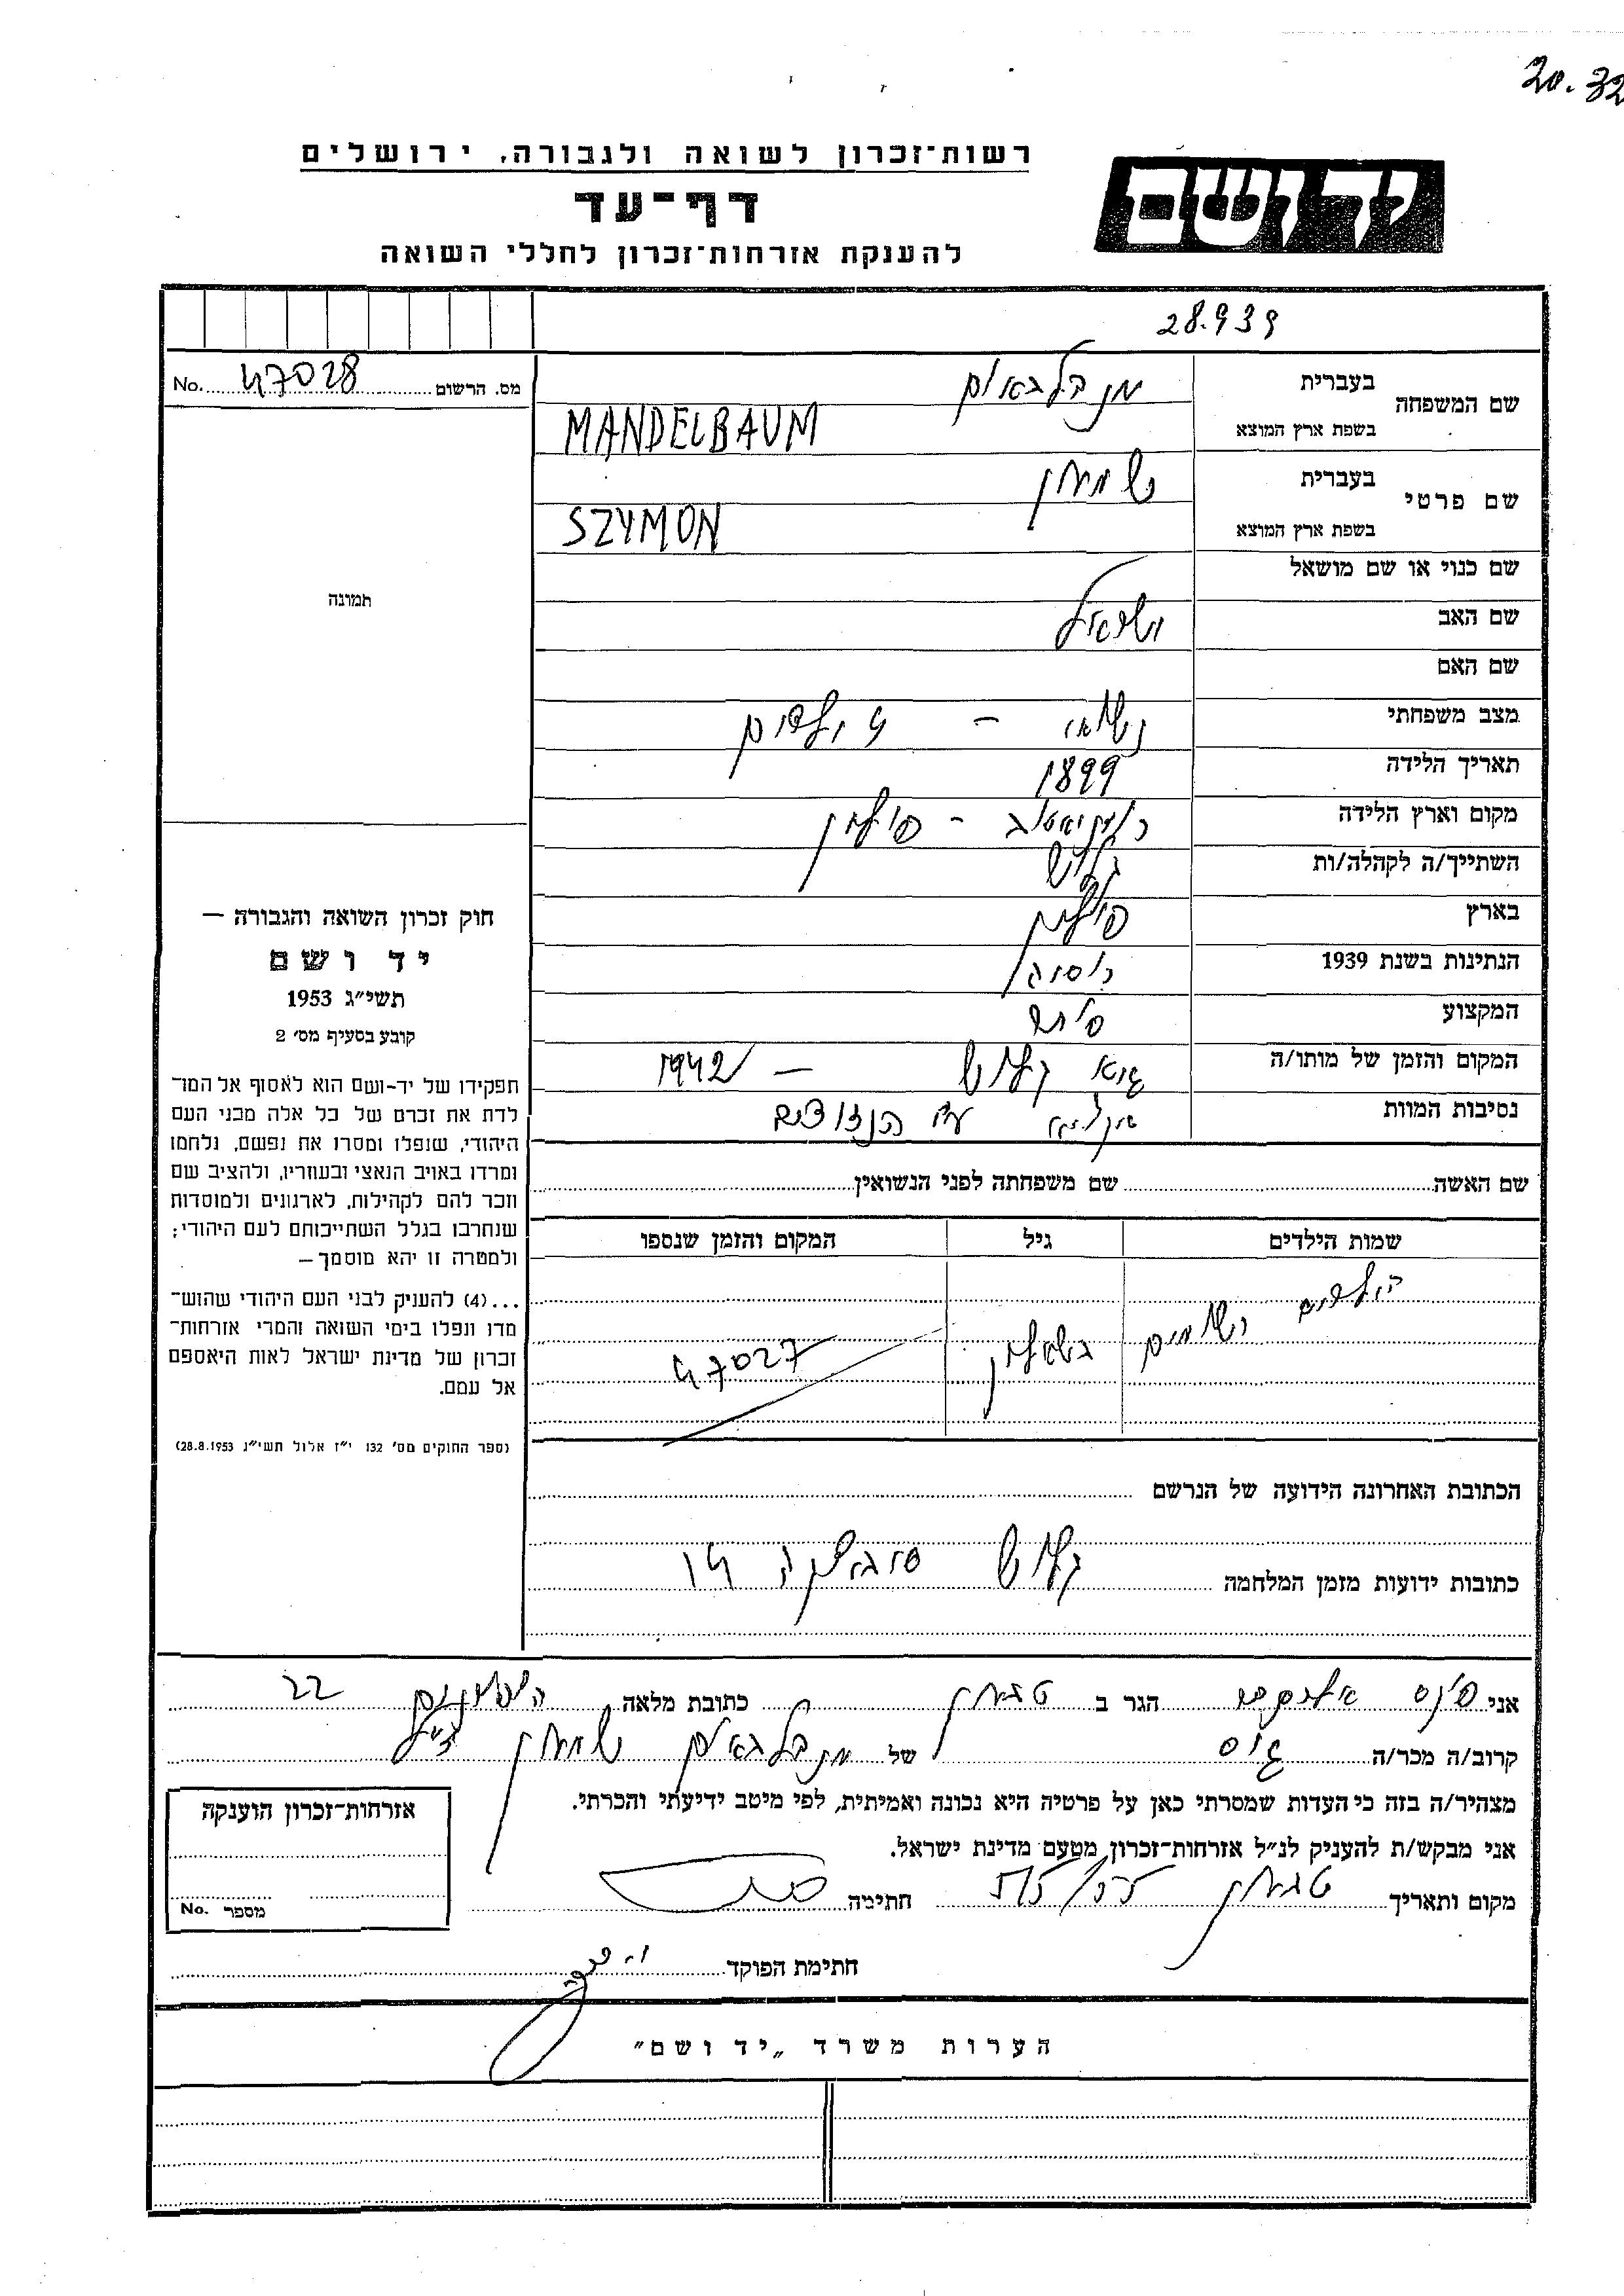 20.32
רשות־זכרון לשואה ולגבורה, ירושלים
יד ושם
דף־עד
להענקת אזרחות־זכרון לחללי השואה
28.939
מס. הרשום 47028 No.
שם המשפחה
בעברית מנדלבאום
בשפת ארץ המוצא MANDELBAUM
שם פרטי
בעברית שמעון
בשפת ארץ המוצא SZYMON
שם כנוי או שם מושאל
שם האב ישראל
שם האם
מצב משפחתי נשוי – ילדים
תאריך הלידה 1899
מקום וארץ הלידה – פולין
השתייך/ה לקהלה/ות קלוש
בארץ פולין
הנתינות בשנת 1939
המקצוע סוחר
המקום והזמן של מותו/ה גיא קלוש – 1942
נסיבות המוות ע״י הנאצים
שם האשה שם משפחתה לפני הנשואין
שמות הילדים גיל המקום והזמן שנספו
הילדים רשומים בשאלון 47027
הכתובת האחרונה הידועה של הנרשם
כתובות ידועות מזמן המלחמה קלוש
תמונה
חוק זכרון השואה והגבורה —
יד ושם
תשי״ג 1953
קובע בסעיף מס׳ 2
תפקידו של יד-ושם הוא לאסוף אל המו־
לדת את זכרם של כל אלה מבני העם
היהודי, שנפלו ומסרו את נפשם, נלחמו
ומרדו באויב הנאצי ובעוזריו, ולהציב שם
וזכר להם לקהילות, לארגונים ולמוסדות
שנחרבו בגלל השתייכותם לעם היהודי;
ולמטרה זו יהא מוסמך—
...(4) להעניק לבני העם היהודי שהוש־
מדו ונפלו בימי השואה והמרי אזרחות־
זכרון של מדינת ישראל לאות היאספם
אל עמם.
(ספר החוקים מס׳ 132 י״ז אלול תשי״ג 28.8.1953)
אני הגר ב טבעון כתובת מלאה 22
קרוב/ה מכר/ה גיס של מנדלבאום שמעון ז״ל
מצהיר/ה בזה כי העדות שמסרתי כאן על פרטיה היא נכונה ואמיתית, לפי מיטב ידיעתי והכרתי.
אני מבקש/ת להעניק לנ״ל אזרחות־זכרון מטעם מדינת ישראל.
מקום ותאריך טבעון חתימה
אזרחות־זכרון הוענקה
מספר No.
חתימת הפוקד
הערות משרד „יד ושם״